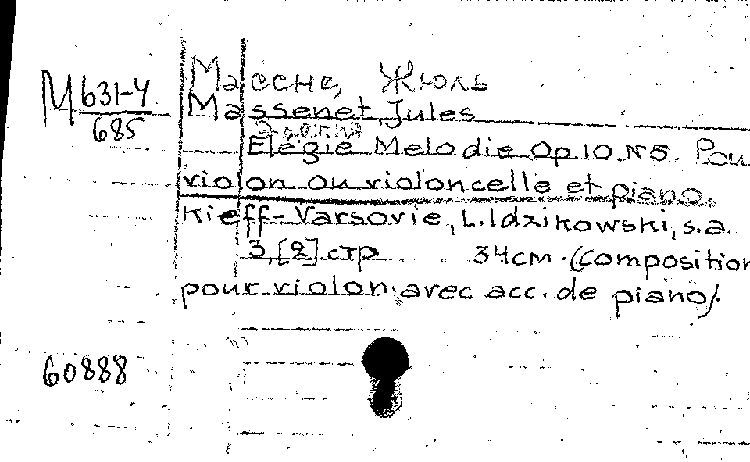 М 631-4
685
Массне, Жюль
Massenet, Jules
Elegie Melodie Op.10, N5. Pou
violon ou violoncelle et piano.
Kieff-Varsovie, L. Idzikowski, s.a.
3,[2] стр 34см. (Composition
pour violon avec acc. de piano).
60888